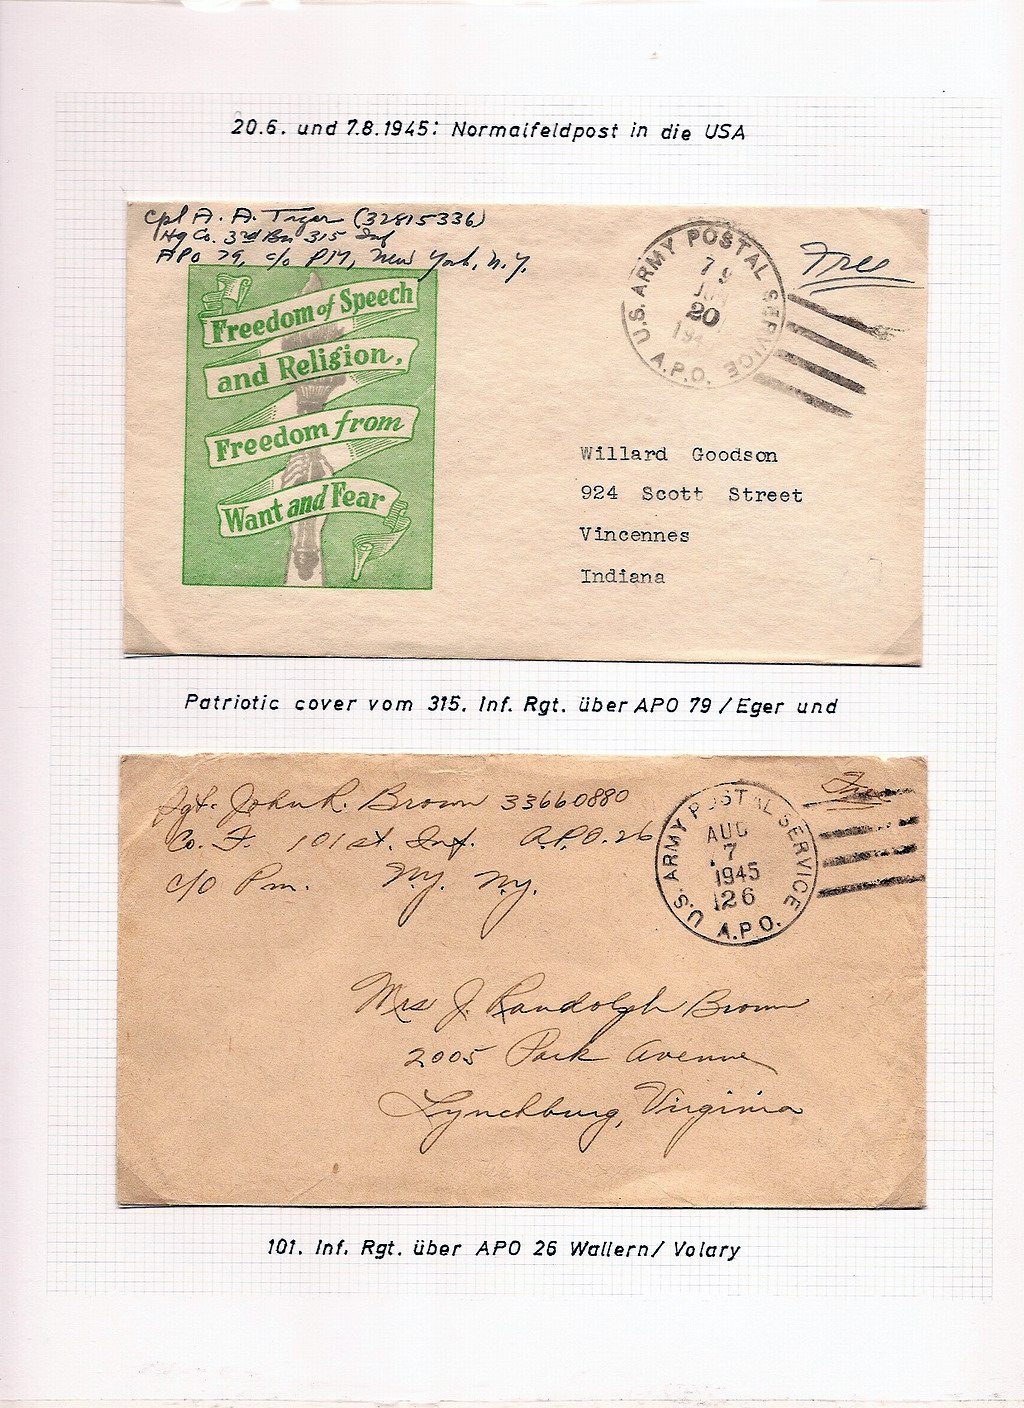 20.6. und 7.8.1945: Normalfeldpost in die USA
Cpl A. A. (32815336)
Hq Co. 3rd Bn 315 Inf
APO 79, c/o PM, New York, N.Y.
Free
U.S. ARMY POSTAL SERVICE
79
20
A.P.O.
Freedom of Speech
and Religion,
Freedom from
Want and Fear
Willard Goodson
924 Scott Street
Vincennes
Indiana
Patriotic cover vom 315. Inf. Rgt. über APO 79 / Eger und
Sgt. John R. Brown 33660880
Co. F. 101st. Inf. A.P.O. 26
c/o Pm. N.Y. N.Y.
Free
U.S. ARMY POSTAL SERVICE
AUG
7
1945
26
A.P.O.
Mrs J. Randolph Brown
2005 Park Avenue
Lynchburg, Virginia
101. Inf. Rgt. über APO 26 Wallern / Volary